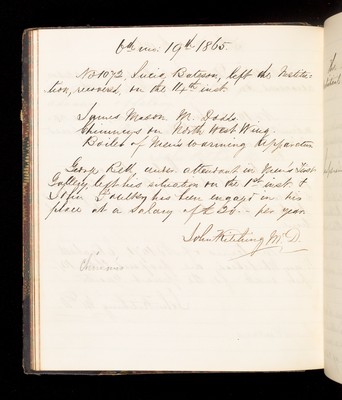 6th mo. 19th 1865.
No 1072 Lucia Bateson, left the Institu-
tion, recovered, on the 14th inst
James Mason Mr. Dodds
Chimneys on North West Wing.
Boiler of Men's warming Apparatus
George Rell under attendant in Men's First
Gallery, left his situation on the 1st inst &
John Poultry has been engaged in his
place at a salary of £30 :- per year
John Kitching M.D.